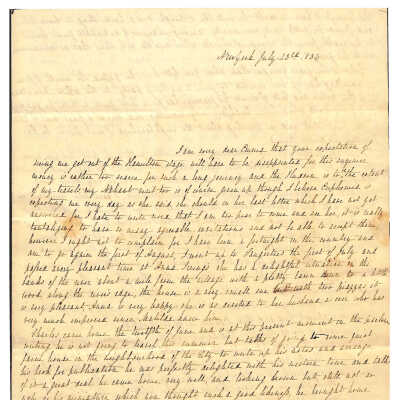 New York July 23rd, 183
I am very dear Emma that your expectation of
seeing me get out of the Hamilton stage will have to be disappointed for this summer
money is rather too scarce for such a long journey and the Hudson is to be the extent
of my travels my visit too is of course given up though I believe
expecting me every day as she said she should in her last letter which I have not yet
answered for I hate to write word that I am too poor to come and see her, it is really
tantalizing to have so many agreable invitations and not be able to accept them
however I ought not to complain for I have been a fortnight in the country and
am to go again the first of August, I went up to the first of July and
passed very pleasant time at Anna she has a delightful situation on the
banks of the river about a mile from the village with a pretty lawn down to a little
wood along the rivers edge, the house is a very small one but with two piazzas it
is very pleasant Anna is very happy she is so devoted to her husband a son who has
very much improved since Matilda saw him,
Charles came home the twelfth of June and is at this present moment in the parlour
writing he is not going to travel this summer but talks of going to some quiet
farm house in the neighbourhood of the city to write up his notes and arrange
his book for publication he was perfectly delighted with his western tour and talks
of it a great deal he came home very well, and looking brown but still not so
as his miniature which you thought such a good likeness, he brought home